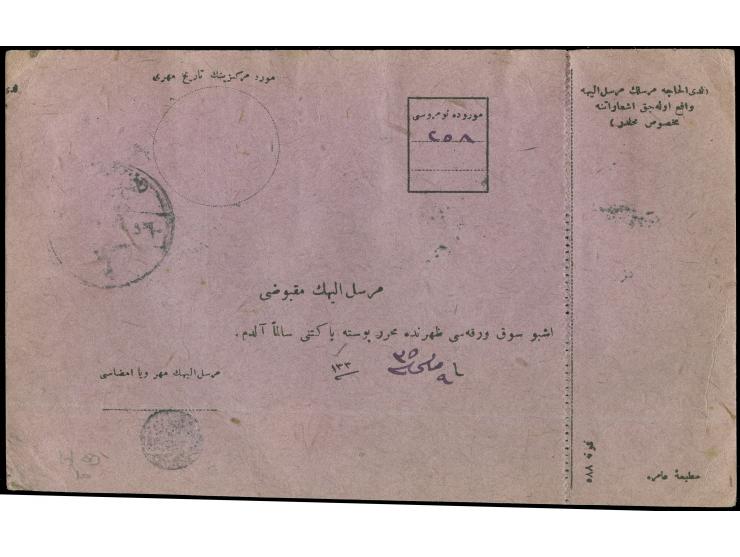 مورد مركزينك تاريخ مهرى
موروده نومروسى
٢٥٨
لدى الحاجه مرسلك مرسل اليهه
واقع اوله جق اشعاراتنه
مخصوص محلدر
مرسل اليهك مقبوضى
اشبو سوق ورقه سى ظهرنده محرر پوسته پاكتنى سالماً آلدم.
٩ مايس ٣٥
١٣٣
مرسل اليهك مهر ويا امضاسى
٥٨٨
مطبعهٔ عامره